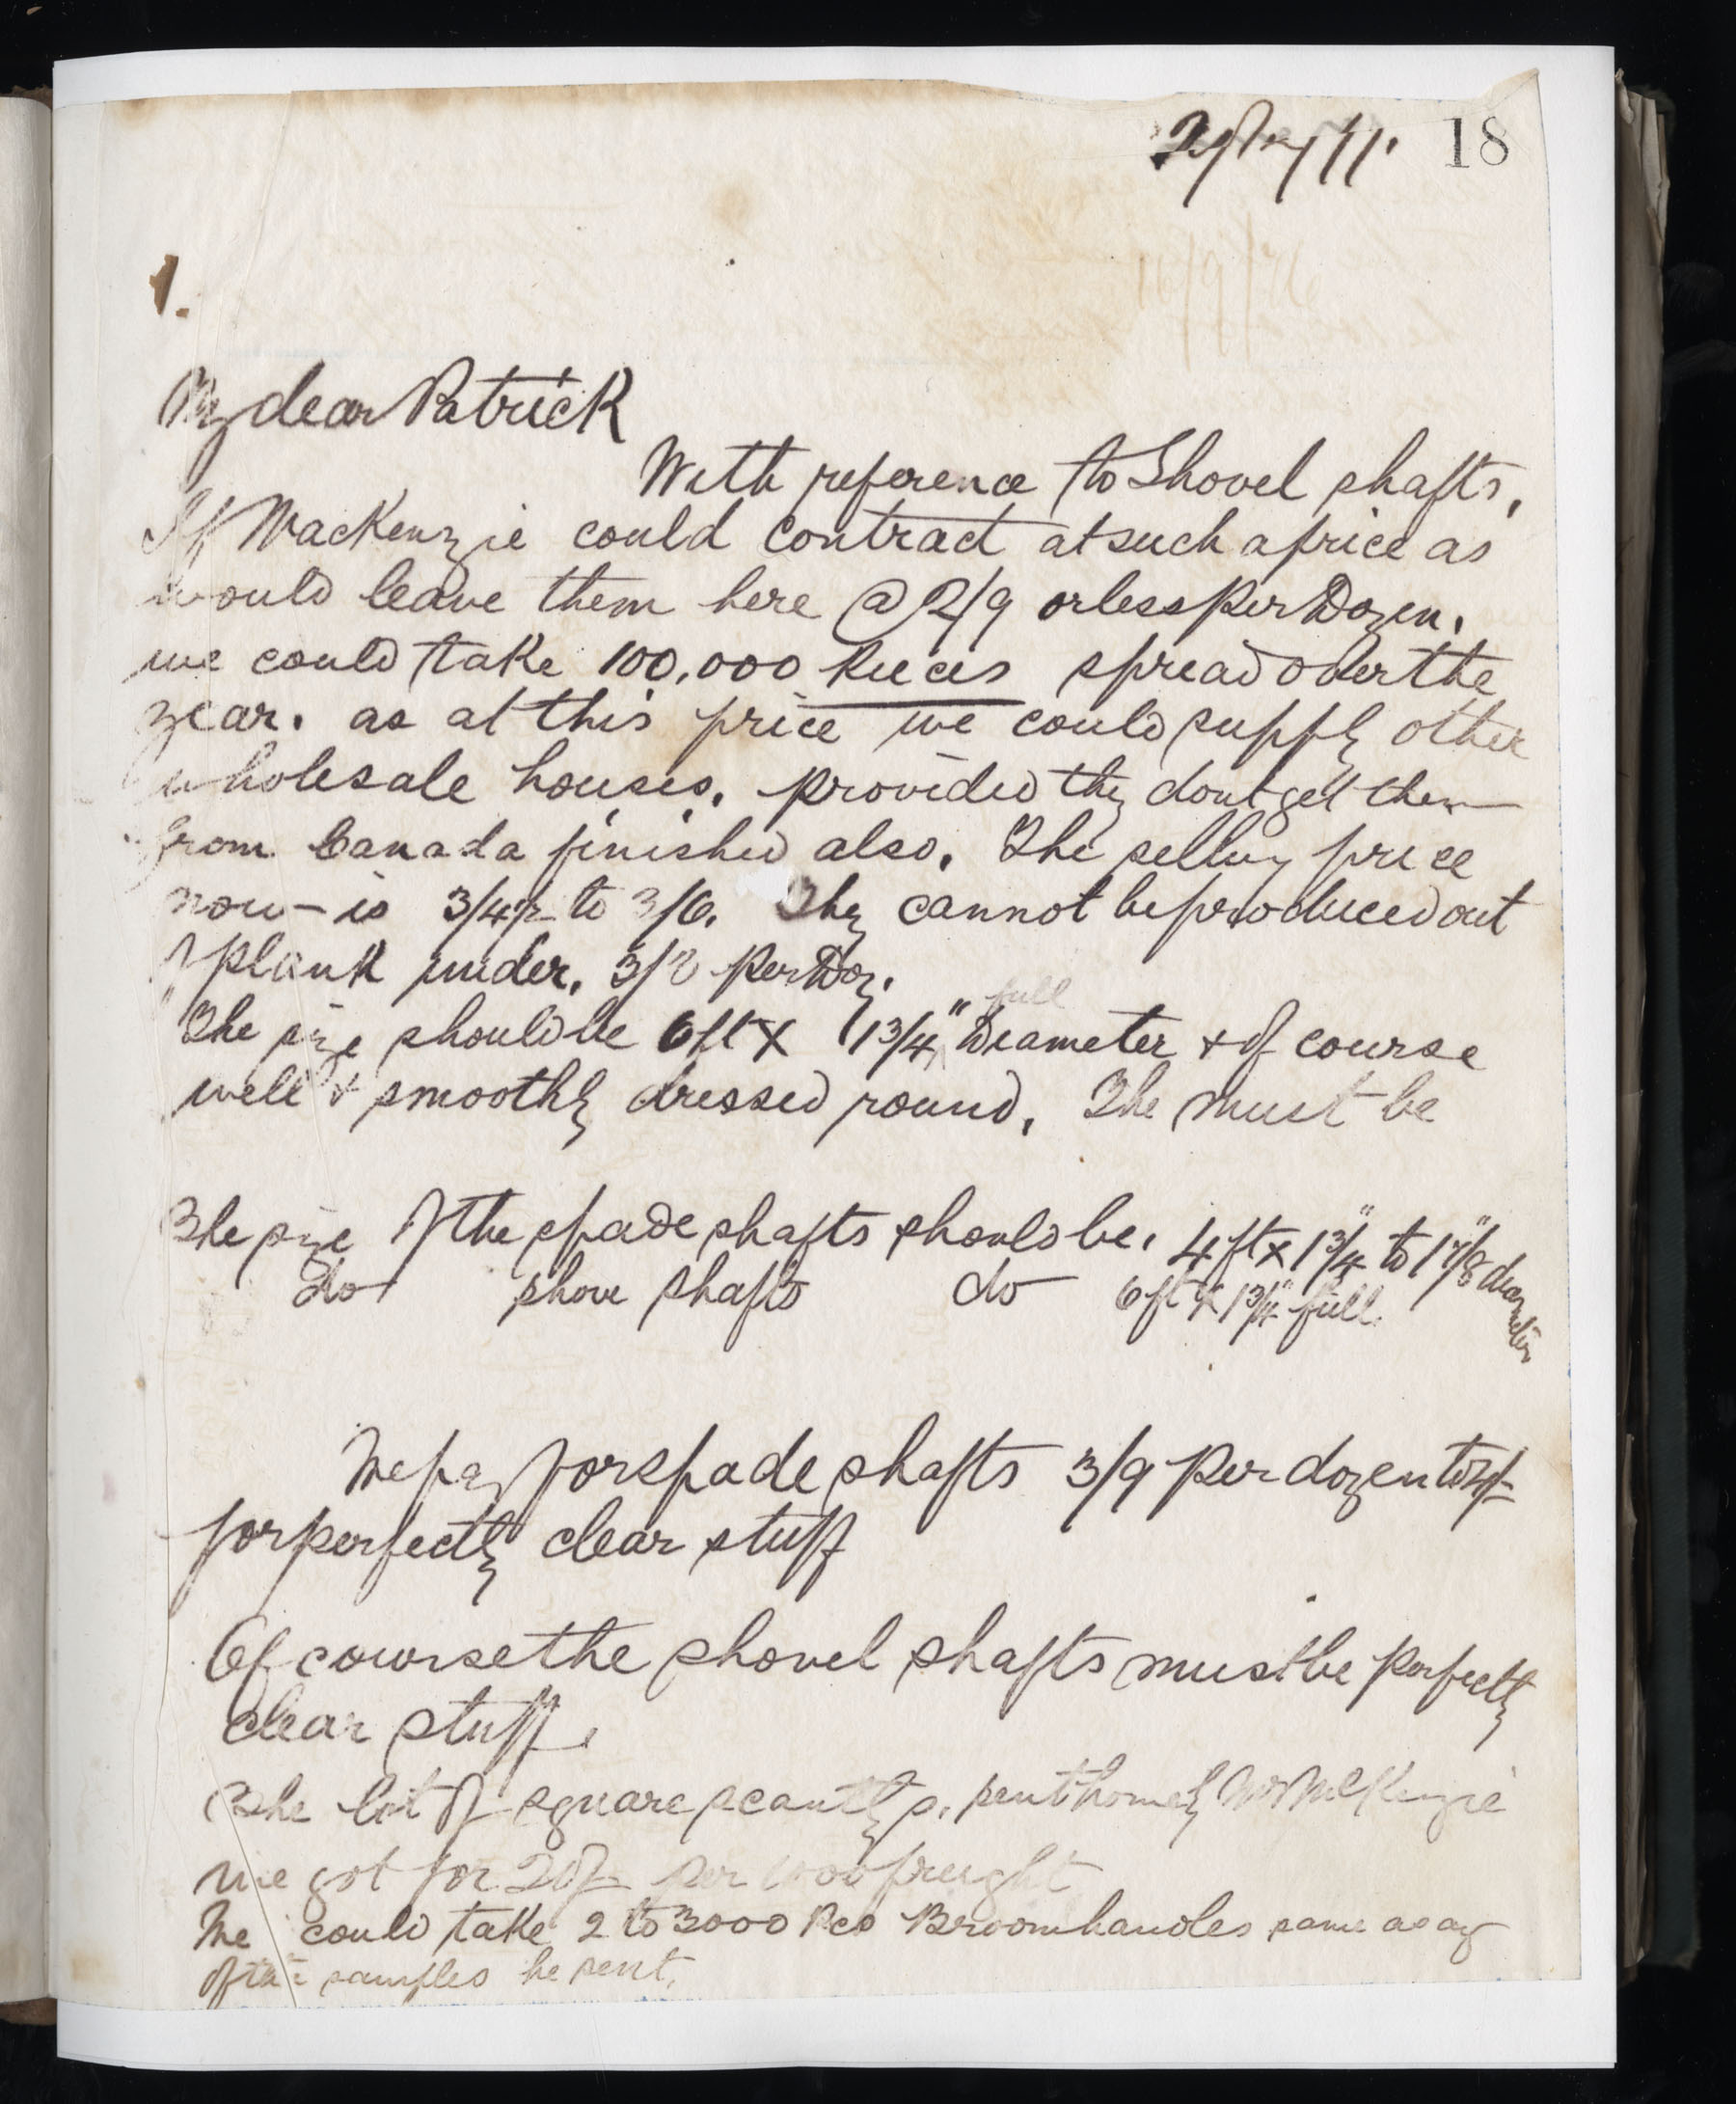 18
1.
My dear Patrick
With reference to Shovel shafts,
If MacKenzie could contract at such a price as
would leave them here @ 2/9 or less Per Dozen.
we could take 100,000 Pieces spread over the
year. as at this price we could supply other
wholesale houses. provided they dont get them
from Canada finished also. The selling price
now is 3/4½ to 3/6. They cannot be produced out
of plank under. 3/2 Per Doz.
The size should be 6ft x 1¾" full Diameter & of course
well & smoothly dressed round. The must be
The size of the spade shafts should be. 4 ft x 1¾" to 1⅞" diameter
do shove shafts do 6 ft x 1¾" full.
We pay for spade shafts 3/9 Per dozen to
for perfectly clear stuff
Of course the shovel shafts must be perfectly
clear stuff.
The lot of square scantlgs. sent home by Mr McKenzie
we got for per 1000 freight
We could take 2 to 3000 Pcs Broomhandles same as any
of the samples he sent.